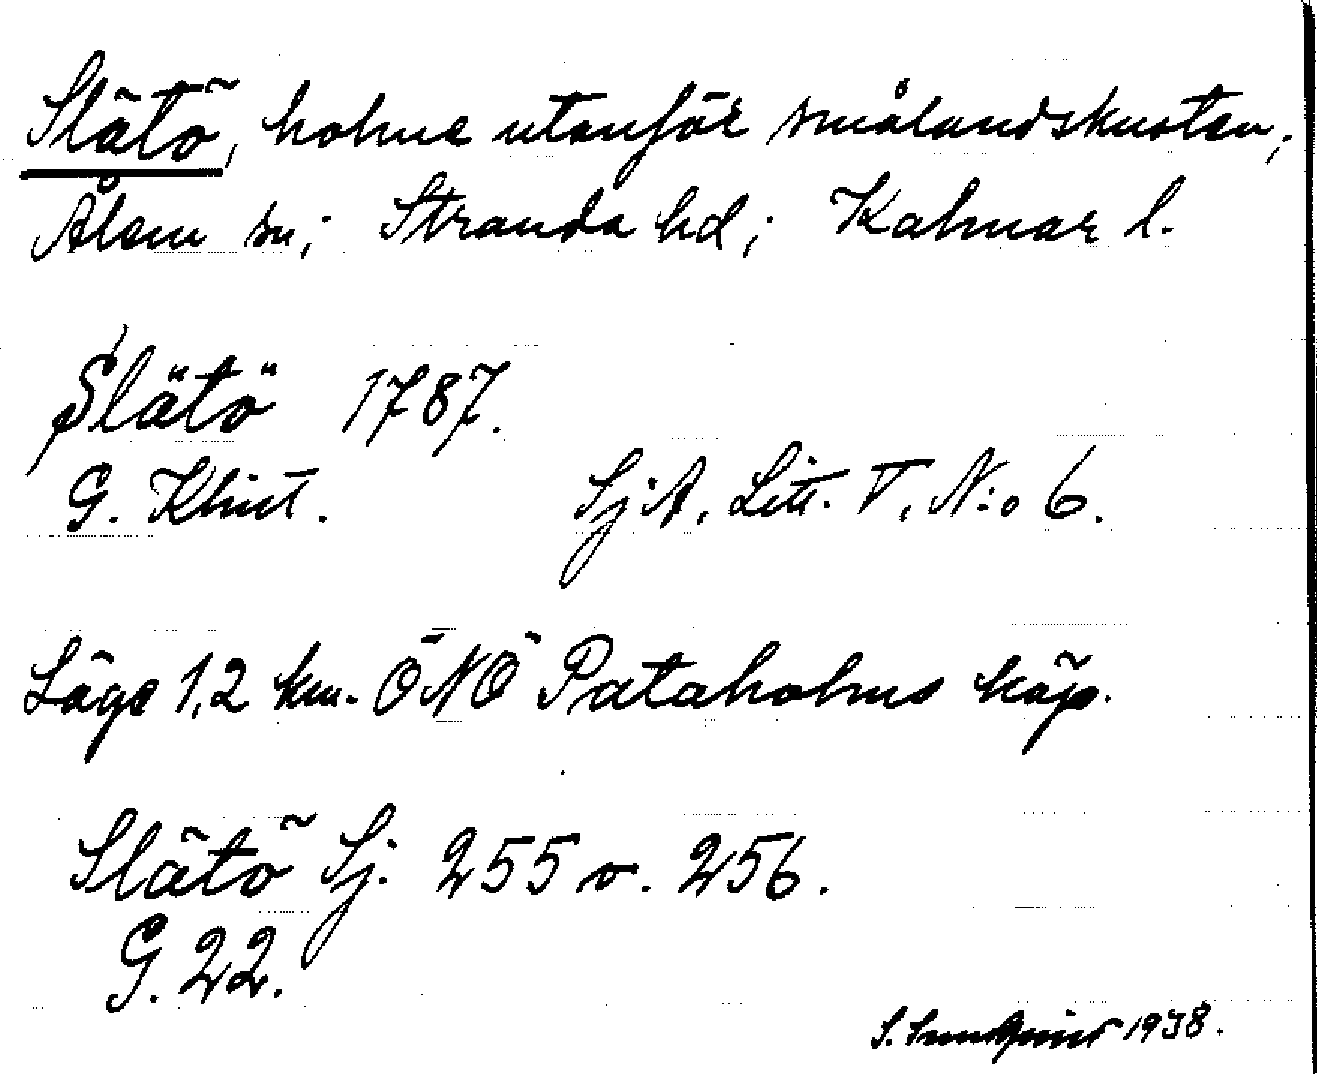 Slätö, holme utanför smålandskusten,
Ålem sn; Stranda hd; Kalmar l.
Slätö 1787.
G. Klint. SjA, Litt. T, N:o 6.
Läge 1,2 km. ÖNÖ Pataholms köp.
Slätö Sj. 255 o. 256.
G. 22.
S. 1938.